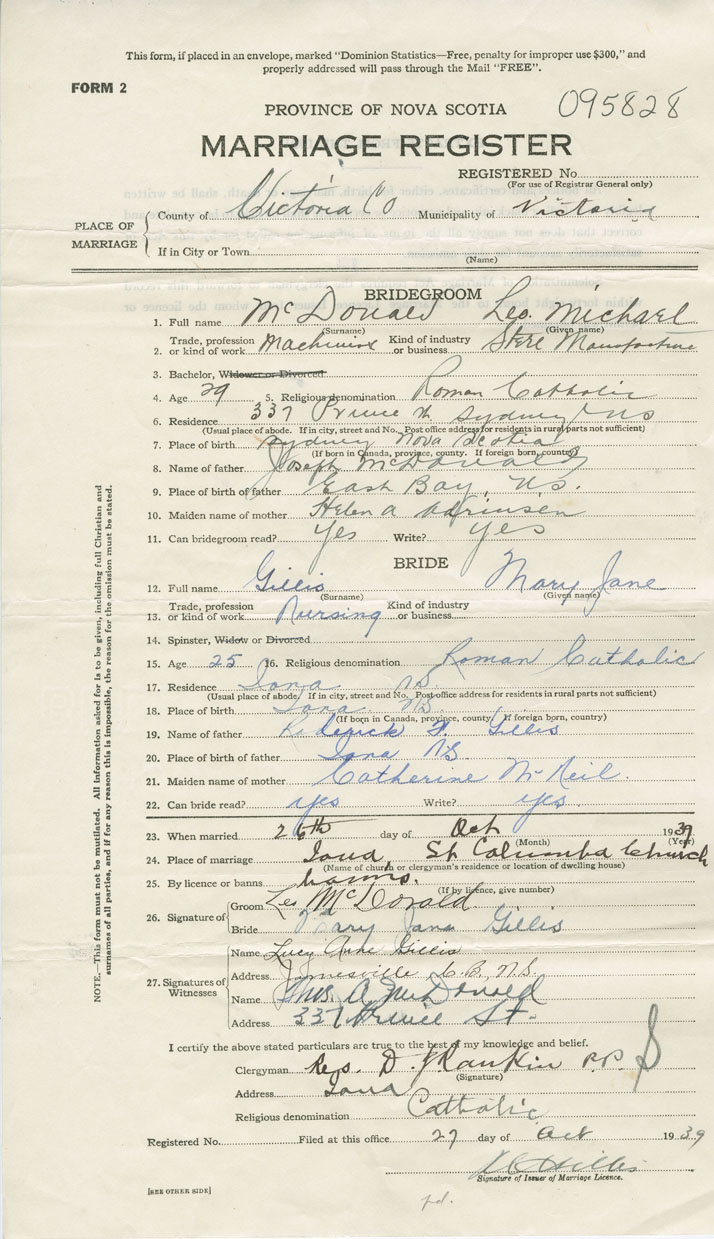 This form, if placed in an envelope, marked "Dominion Statistics—Free, penalty for improper use $300," and
properly addressed will pass through the Mail "FREE".
FORM 2
PROVINCE OF NOVA SCOTIA 095828
MARRIAGE REGISTER
REGISTERED No
(For use of Registrar General only)
PLACE OF MARRIAGE
County of Victoria Co Municipality of Victoria
If in City or Town
(Name)
BRIDEGROOM
1. Full name McDonald Leo Michael
(Surname) (Given name)
Trade, profession Kind of industry
2. or kind of work Machinist or business Steel Manufacture
3. Bachelor, Widower or Divorced
4. Age 29 5. Religious denomination Roman Catholic
6. Residence 337 Prince St Sydney NS
(Usual place of abode. If in city, street and No. Post office address for residents in rural parts not sufficient)
7. Place of birth Sydney Nova Scotia
(If born in Canada, province, county. If foreign born, country)
8. Name of father Joseph McDonald
9. Place of birth of father East Bay, N.S.
10. Maiden name of mother Helen
11. Can bridegroom read? Yes Write? Yes
BRIDE
12. Full name Gillis Mary Jane
(Surname) (Given name)
Trade, profession Kind of industry
13. or kind of work Nursing or business
14. Spinster, Widow or Divorced
15. Age 25 16. Religious denomination Roman Catholic
17. Residence Iona NS
(Usual place of abode. If in city, street and No. Post office address for residents in rural parts not sufficient)
18. Place of birth Iona NS.
(If born in Canada, province, county. If foreign born, country)
19. Name of father Roderick F. Gillis
20. Place of birth of father Iona NS
21. Maiden name of mother Catherine McNeil.
22. Can bride read? yes Write? yes.
23. When married 26th day of Oct 1939
(Month) (Year)
24. Place of marriage Iona, St Columba Church
(Name of church or clergyman's residence or location of dwelling house)
25. By licence or banns banns.
(If by licence, give number)
26. Signature of
Groom Leo McDonald
Bride Mary Jane Gillis
27. Signatures of Witnesses
Name Lucy Anne Gillis
Address Jamesville C.B., N.S.
Name A. McDonald
Address 337 Prince St.
I certify the above stated particulars are true to the best of my knowledge and belief.
Clergyman Rev. D. J. Rankin P.P.
(Signature)
Address Iona
Religious denomination Catholic
Registered No. Filed at this office 27 day of Oct 1939
Gillis
Signature of Issuer of Marriage Licence.
[SEE OTHER SIDE]
pd.
NOTE.—This form must not be mutilated. All information asked for is to be given, including full Christian and
surnames of all parties, and if for any reason this is impossible, the reason for the omission must be stated.